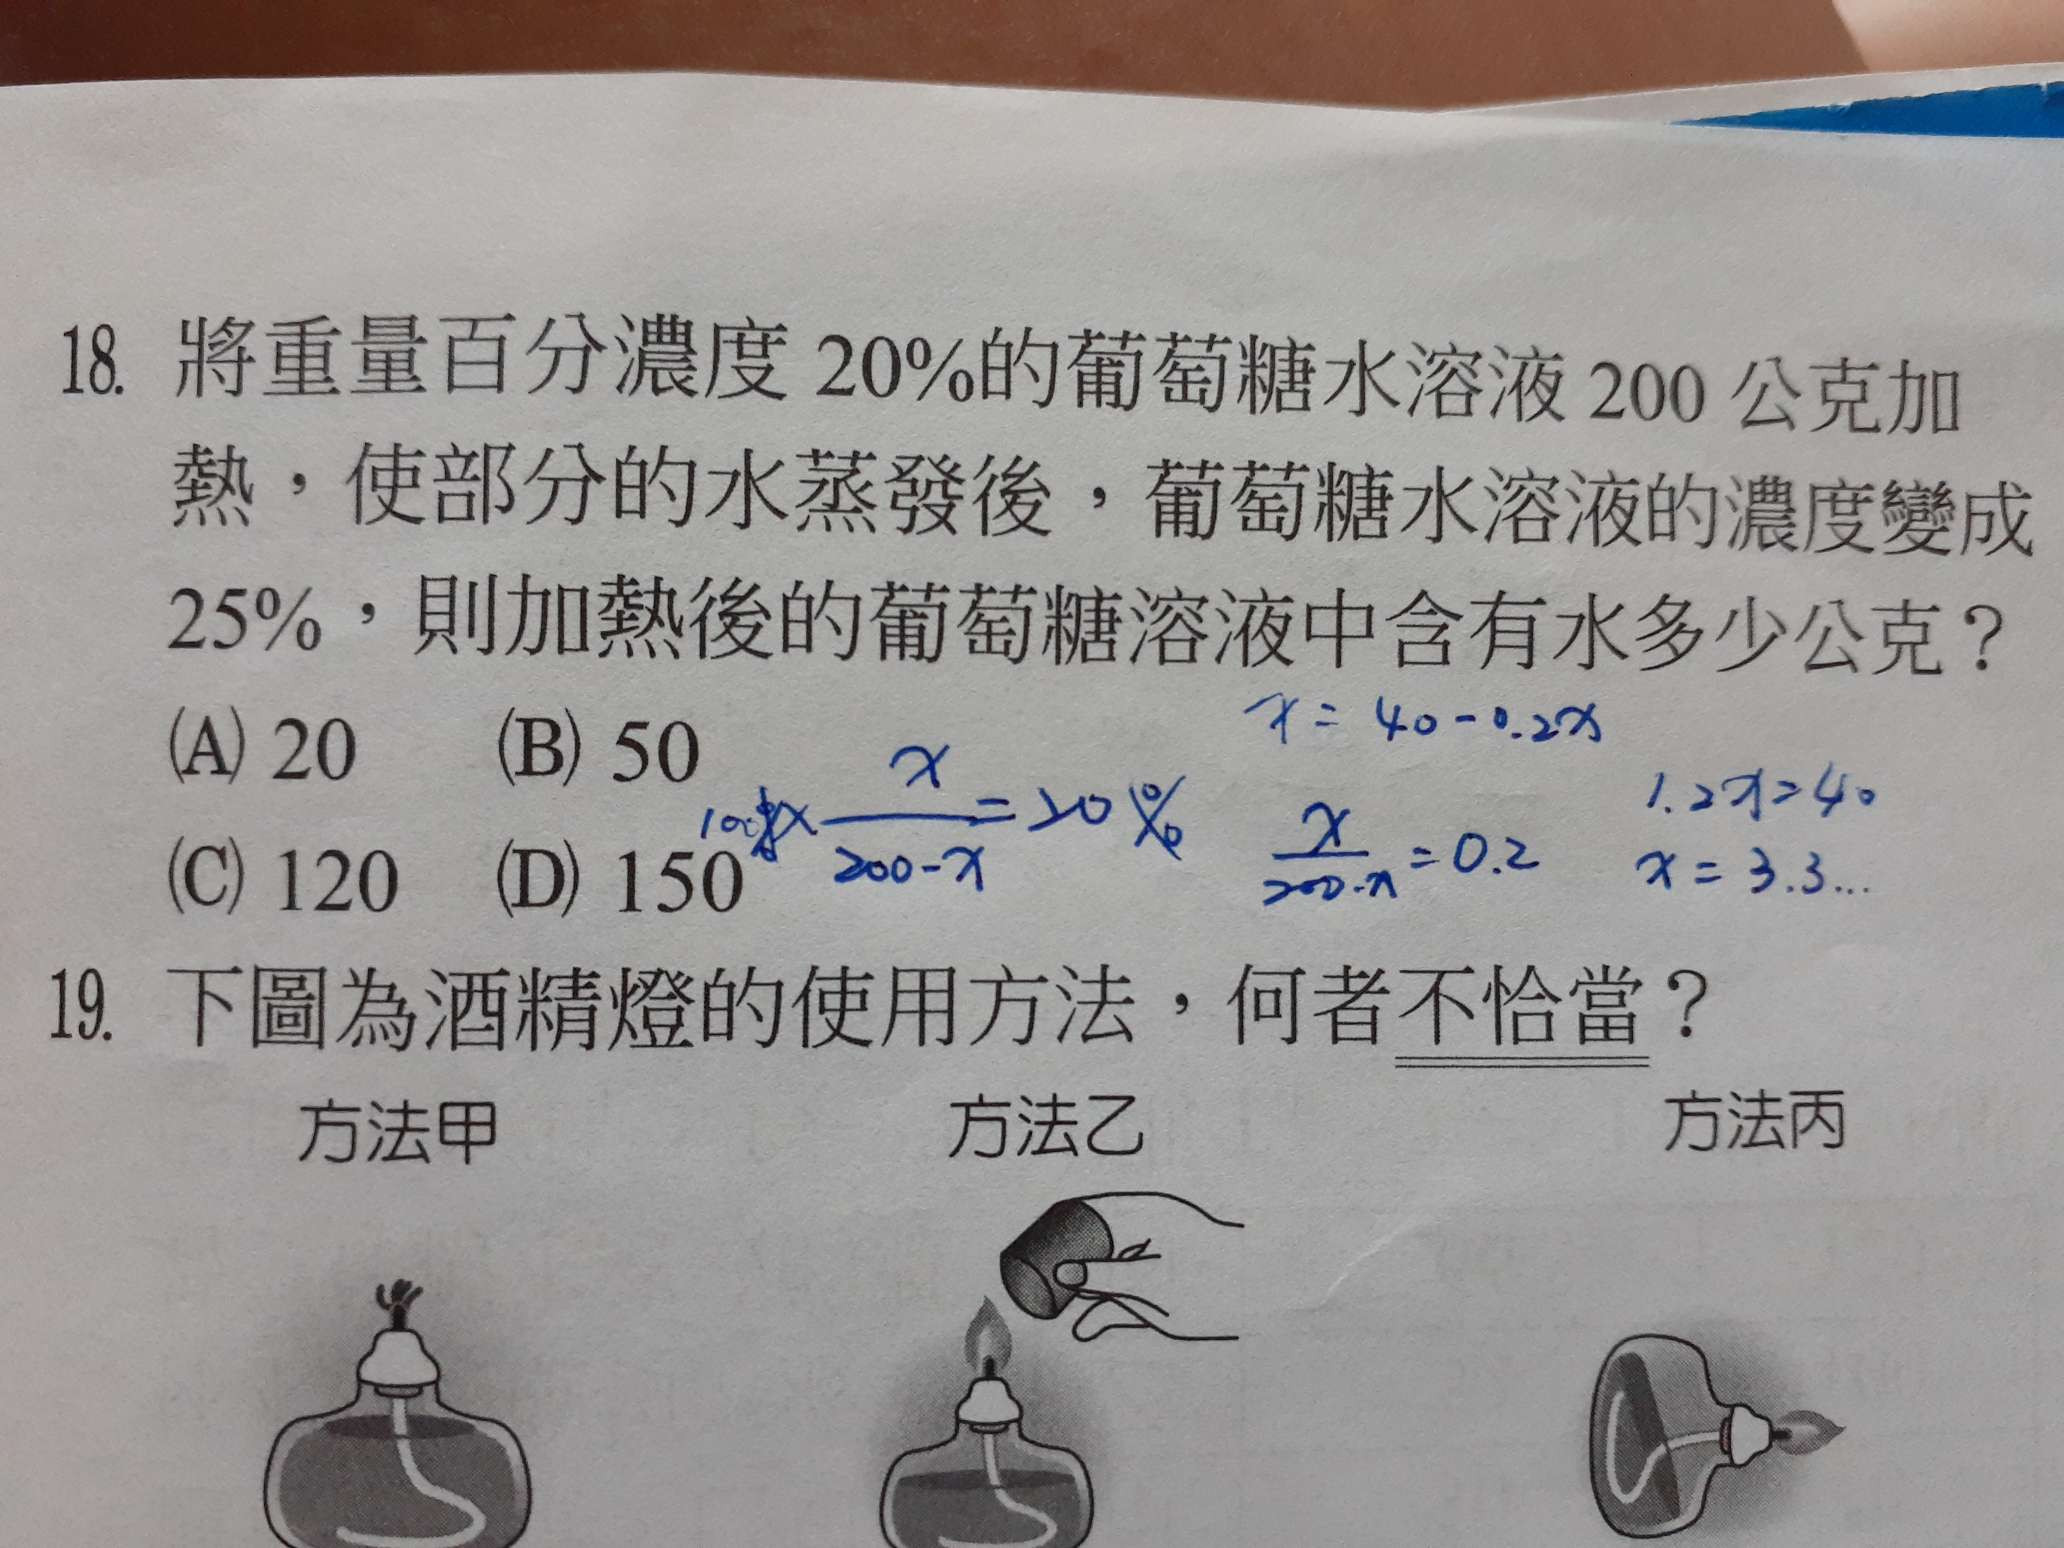 18. 將重量百分濃度 20%的葡萄糖水溶液 200 公克加
熱，使部分的水蒸發後，葡萄糖水溶液的濃度變成
25%，則加熱後的葡萄糖溶液中含有水多少公克？
x = 40 - 0.2x
(A) 20 (B) 50
(C) 120 (D) 150
x
200-x
= 20 %
x
200-x
= 0.2
1.2x = 40
x = 3.3...
19. 下圖為酒精燈的使用方法，何者不恰當？
方法甲 方法乙 方法丙